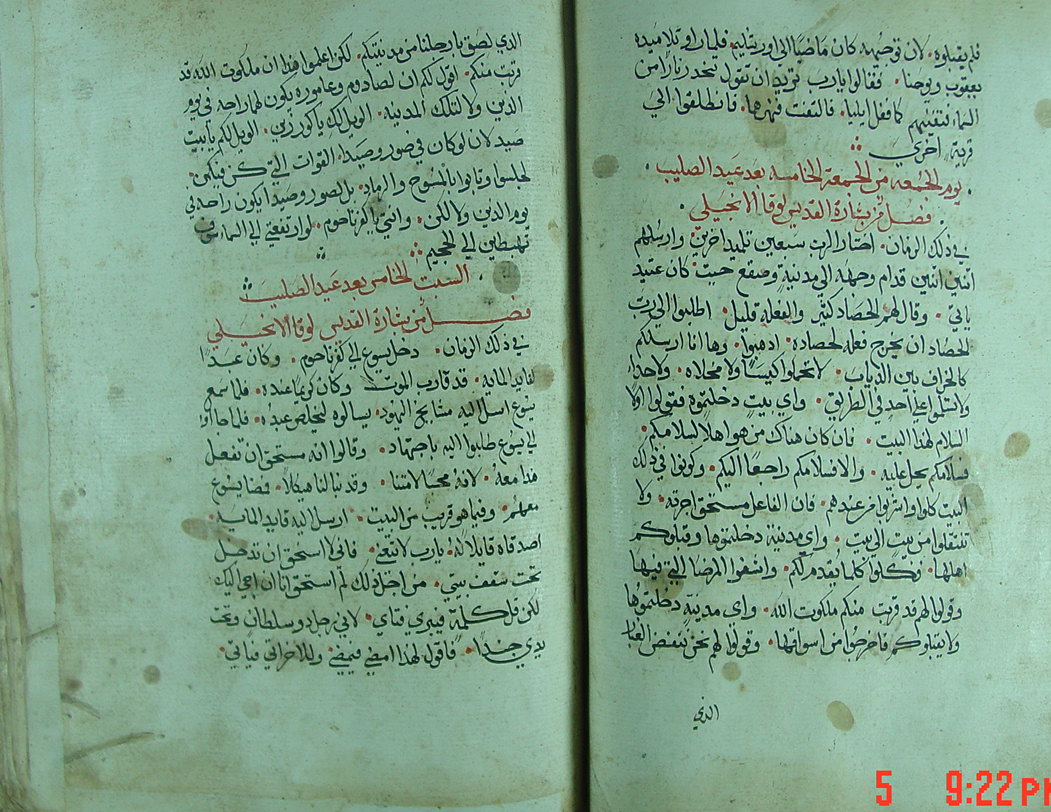 فلم يقبلوه. لان توجهه كان ماضيا الى اورشليم. فلما راو تلاميذه
يعقوب ويوحنا. فقالوا يارب تريد ان نقول تنحدر نار من
السماء فتفنيهم كما فعل ايليا. فالتفت فنهرها. فانطلقوا الى
قرية اخرى
يوم الجمعه من الجمعة الخامسه بعد عيد الصليب
فصل من بشارة القديس لوقا الانجيلي
في ذلك الزمان. اختار الرب سبعين تلميذ اخرين وارسلهم
اثنين اثنين قدام وجهه الى مدينة وصقع حيث كان عتيد
ياتي. وقال لهم الحصاد كثير والفعله قليل. اطلبوا الى رب
الحصاد ان يخرج فعله لحصاده. اذهبوا. وها انا ارسلكم
كالخراف بين الذياب. لا تحملوا كيسا ولا مخلاه. ولا حدا
ولا تسلموا على احد في الطريق. واي بيت دخلتموه فقولوا اولا
السلام لهذا البيت. فان كان هناك من هو اهلا لسلامكم.
فسلامكم يحل عليه. والا فسلامكم راجعا اليكم. وكونوا في ذلك
البيت كلوا واشربوا من عندهم. فان الفاعل مستحق اجرته. ولا
تنتقلوا من بيت الى بيت. واي مدينة دخلتموها وقبلوكم
اهلها. فكلوا كلما يقدم لكم. واشفوا المرضا التي فيها
وقولوا لهم قد قربت منكم ملكوت الله. واي مدينة دخلتموها
ولا يقبلوكم فاخرجوا من اسواقها. وقولوا لهم نحن ننفض الغبار
الذي
الذي لصق بارجلنا من مدينتكم. لكن اعلموا هذا ان ملكوت الله قد
قربت منكم. اقول لكم ان لصادوم وعاموره يكون لهما راحه في يوم
الدين ولا لتلك المدينه. الويل لك يا كورزين. الويل لكم يا بيت
صيد لان لو كان في صور وصيدا. القوات التي كن فيكن.
لجلسوا وتابوا بالمسوح والرماد. بل لصور وصيدا يكون راحه في
يوم الدين ولا لكن. وانتي يا كفرناحوم. لو ارتفعتي الى السما سوف
تهبطين الى الجحيم
السبت الخامس بعد عيد الصليب
فصل من بشارة القديس لوقا الانجيلي
في ذلك الزمان. دخل يسوع الى كفرناحوم. وكان عبدا
لقايد المايه. قد قارب الموت وكان كريما عنده. فلما سمع
يسوع ارسل اليه مشايخ اليهود. يسالوه ليخلص عبده. فلما جاوا
الى يسوع طلبوا اليه باجتهاد. وقالوا انه مستحق ان تفعل
هذا معه. لانه محبا لامتنا. وقد بنا لنا هيكلا. فمضا يسوع
معهم. وفيما هو قريب من البيت. ارسل اليه قايد المايه.
اصدقاه قايلا له. يارب لا تتعنى. فاني لا استحق ان تدخل
تحت سقف بيتي. من اجل ذلك لم استحق انا ان اجي اليك
لكن قل كلمة فيبري فتاي. لاني رجل ذو سلطان وتحت
يدي جندا. فاقول لهذا امضي فيمضي. وللاخر اتي فياتي.
5 9:22 PM